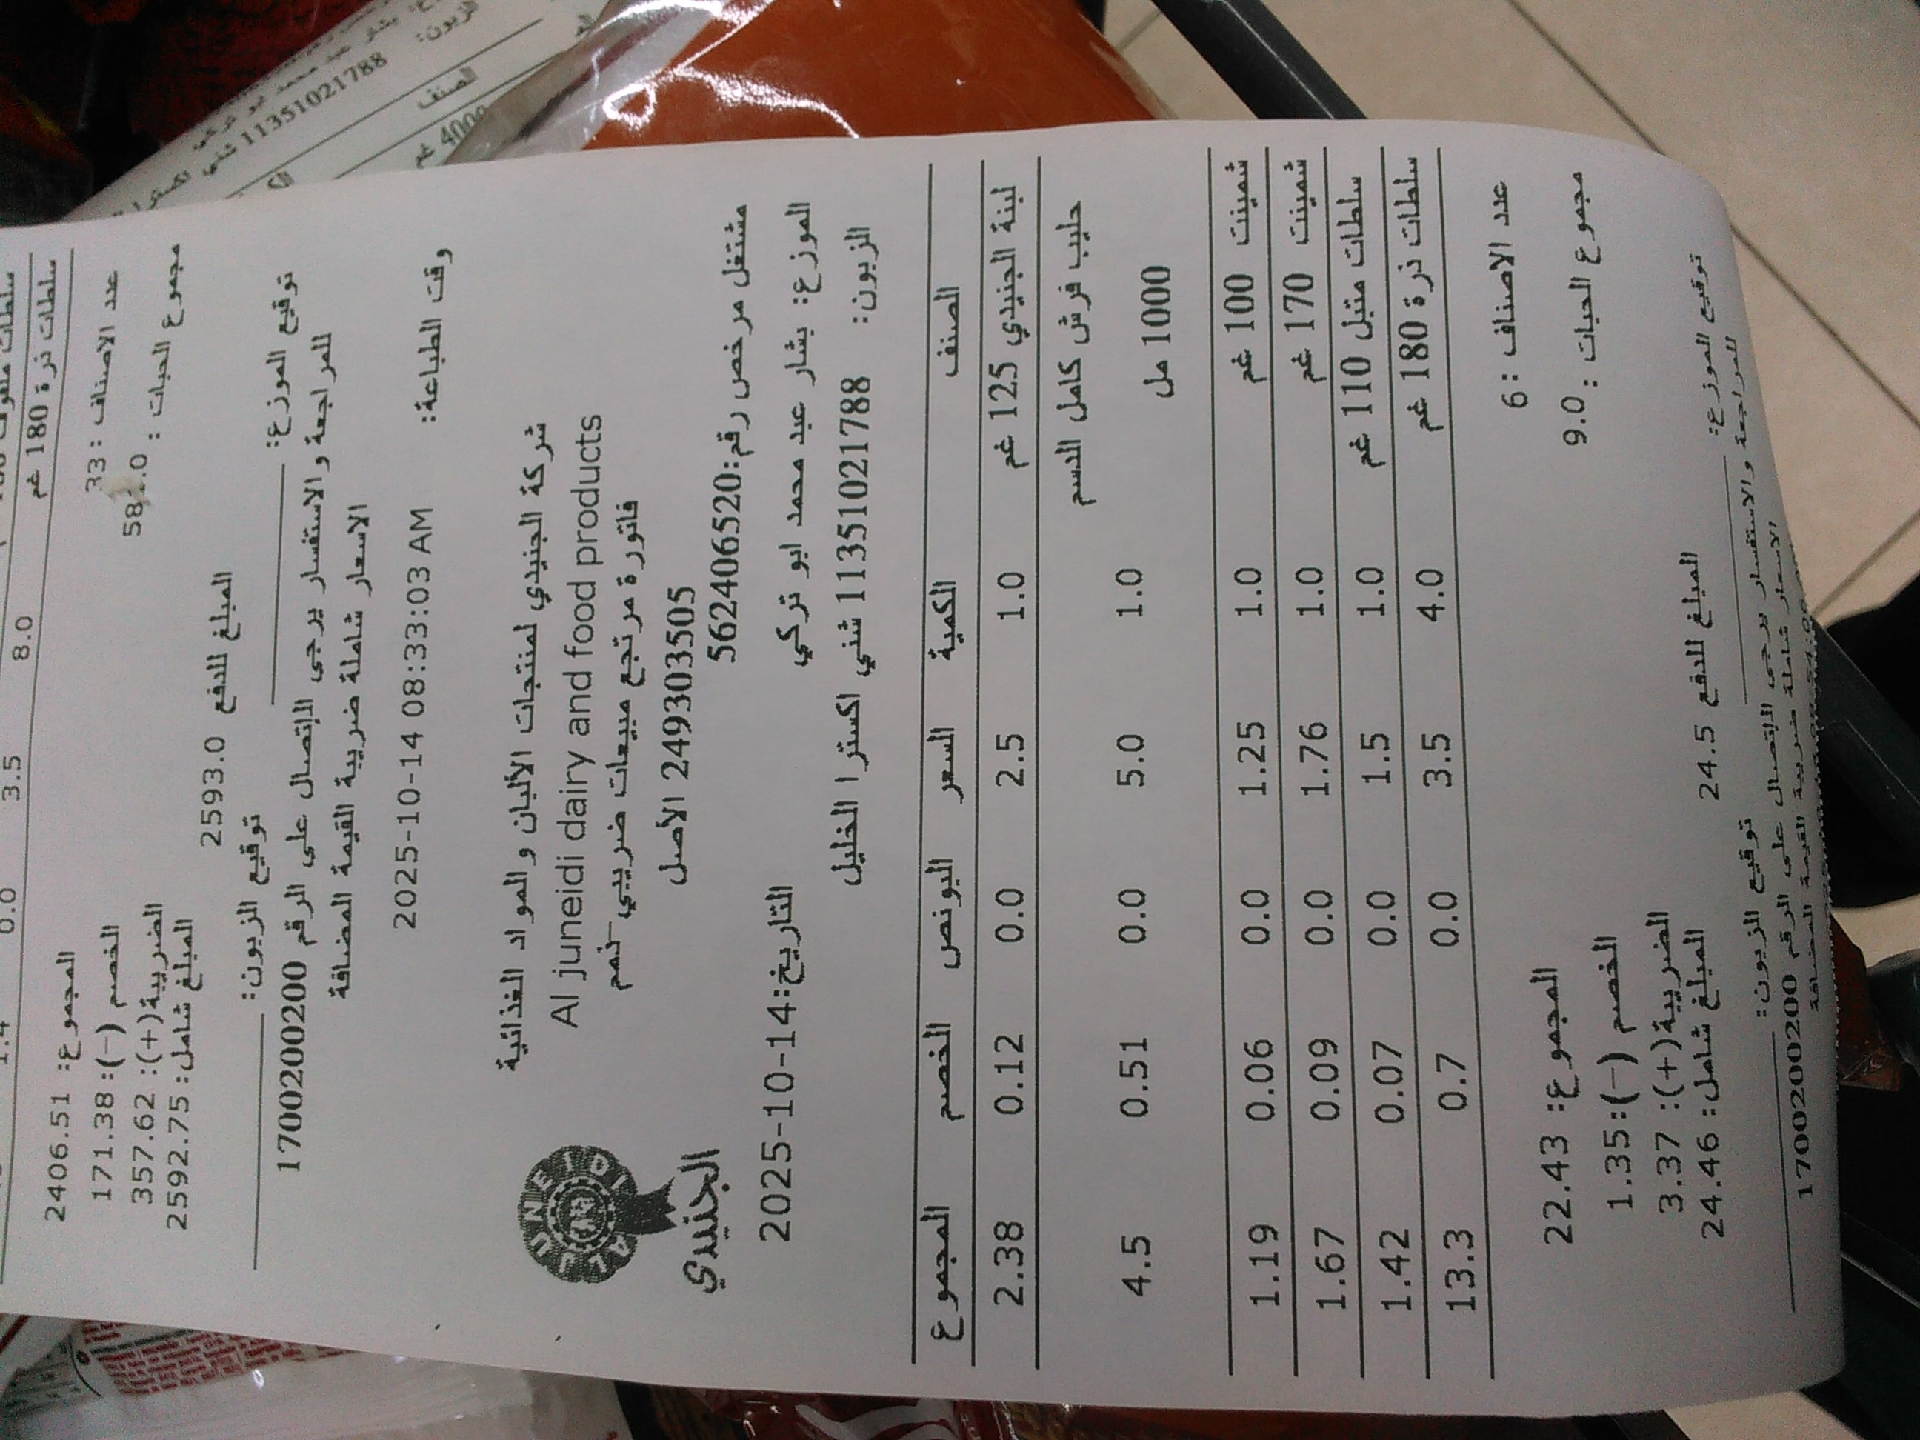 الزبون:
11351021788 شني
الصنف
4000 غم
سلطات ذرة 180 غم 8.0 3.5 0.0 1.4
عدد الاصناف : 33
مجموع الحبات :
المجموع: 2406.51
الخصم (-): 171.38
الضريبة(+): 357.62
المبلغ شامل: 2592.75
المبلغ للدفع 2593.0
توقيع الموزع: توقيع الزبون:
للمراجعة والاستفسار يرجى الإتصال على الرقم 1700200200
الاسعار شاملة ضريبة القيمة المضافة
وقت الطباعة: 2025-10-14 08:33:03 AM
شركة الجنيدي لمنتجات الألبان و المواد الغذائية
Al juneidi dairy and food products
فاتورة مرتجع مبيعات ضريبي
249303505 الاصل
AL JUNEIDI
الجنيدي
مشتغل مرخص رقم:562406520
الموزع: بشار عبد محمد ابو تركي
التاريخ:2025-10-14
الزبون: 11351021788 شني اكسترا الخليل
الصنف الكمية السعر البونص الخصم المجموع
لبنة الجنيدي 125 غم 1.0 2.5 0.0 0.12 2.38
حليب فرش كامل الدسم
1000 مل 1.0 5.0 0.0 0.51 4.5
شمينت 100 غم 1.0 1.25 0.0 0.06 1.19
شمينت 170 غم 1.0 1.76 0.0 0.09 1.67
سلطات متبل 110 غم 1.0 1.5 0.0 0.07 1.42
سلطات ذرة 180 غم 4.0 3.5 0.0 0.7 13.3
عدد الاصناف : 6
مجموع الحبات : 9.0
المجموع: 22.43
الخصم (-): 1.35
الضريبة(+): 3.37
المبلغ شامل: 24.46
المبلغ للدفع 24.5
توقيع الموزع: توقيع الزبون:
للمراجعة والاستفسار يرجى الإتصال على الرقم 1700200200
الاسعار شاملة ضريبة القيمة المضافة